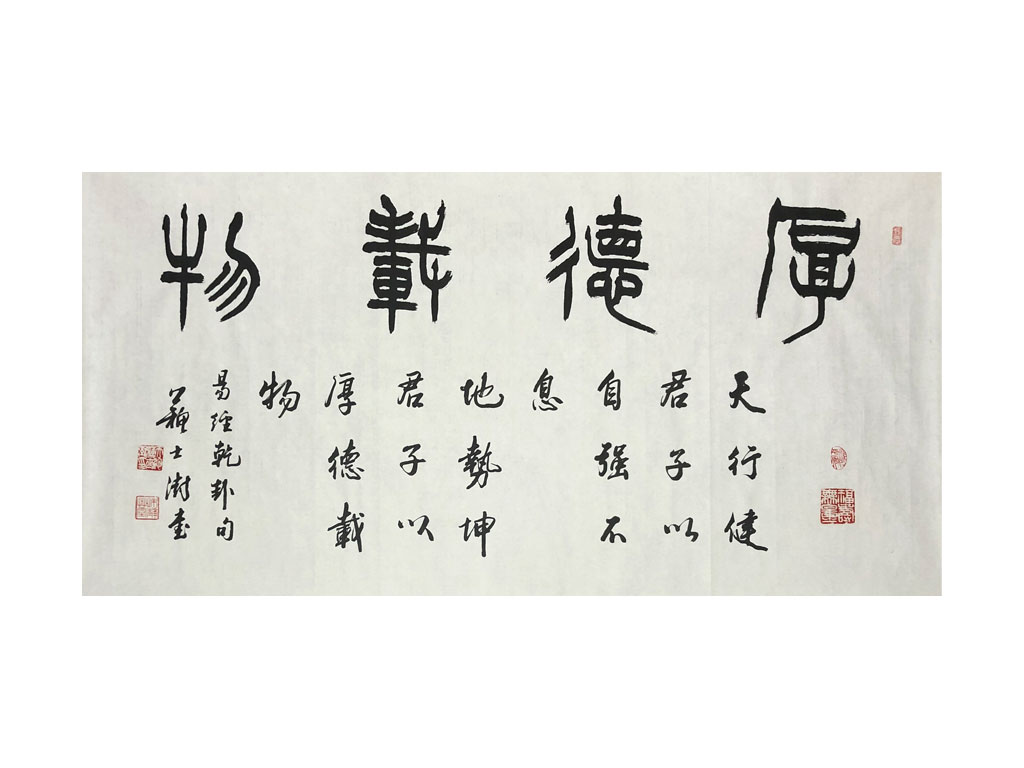 厚德載物
天行健
君子以
自强不
息
地勢坤
君子以
厚德載
物
易經乾卦句
蘇士澍書
福壽無量